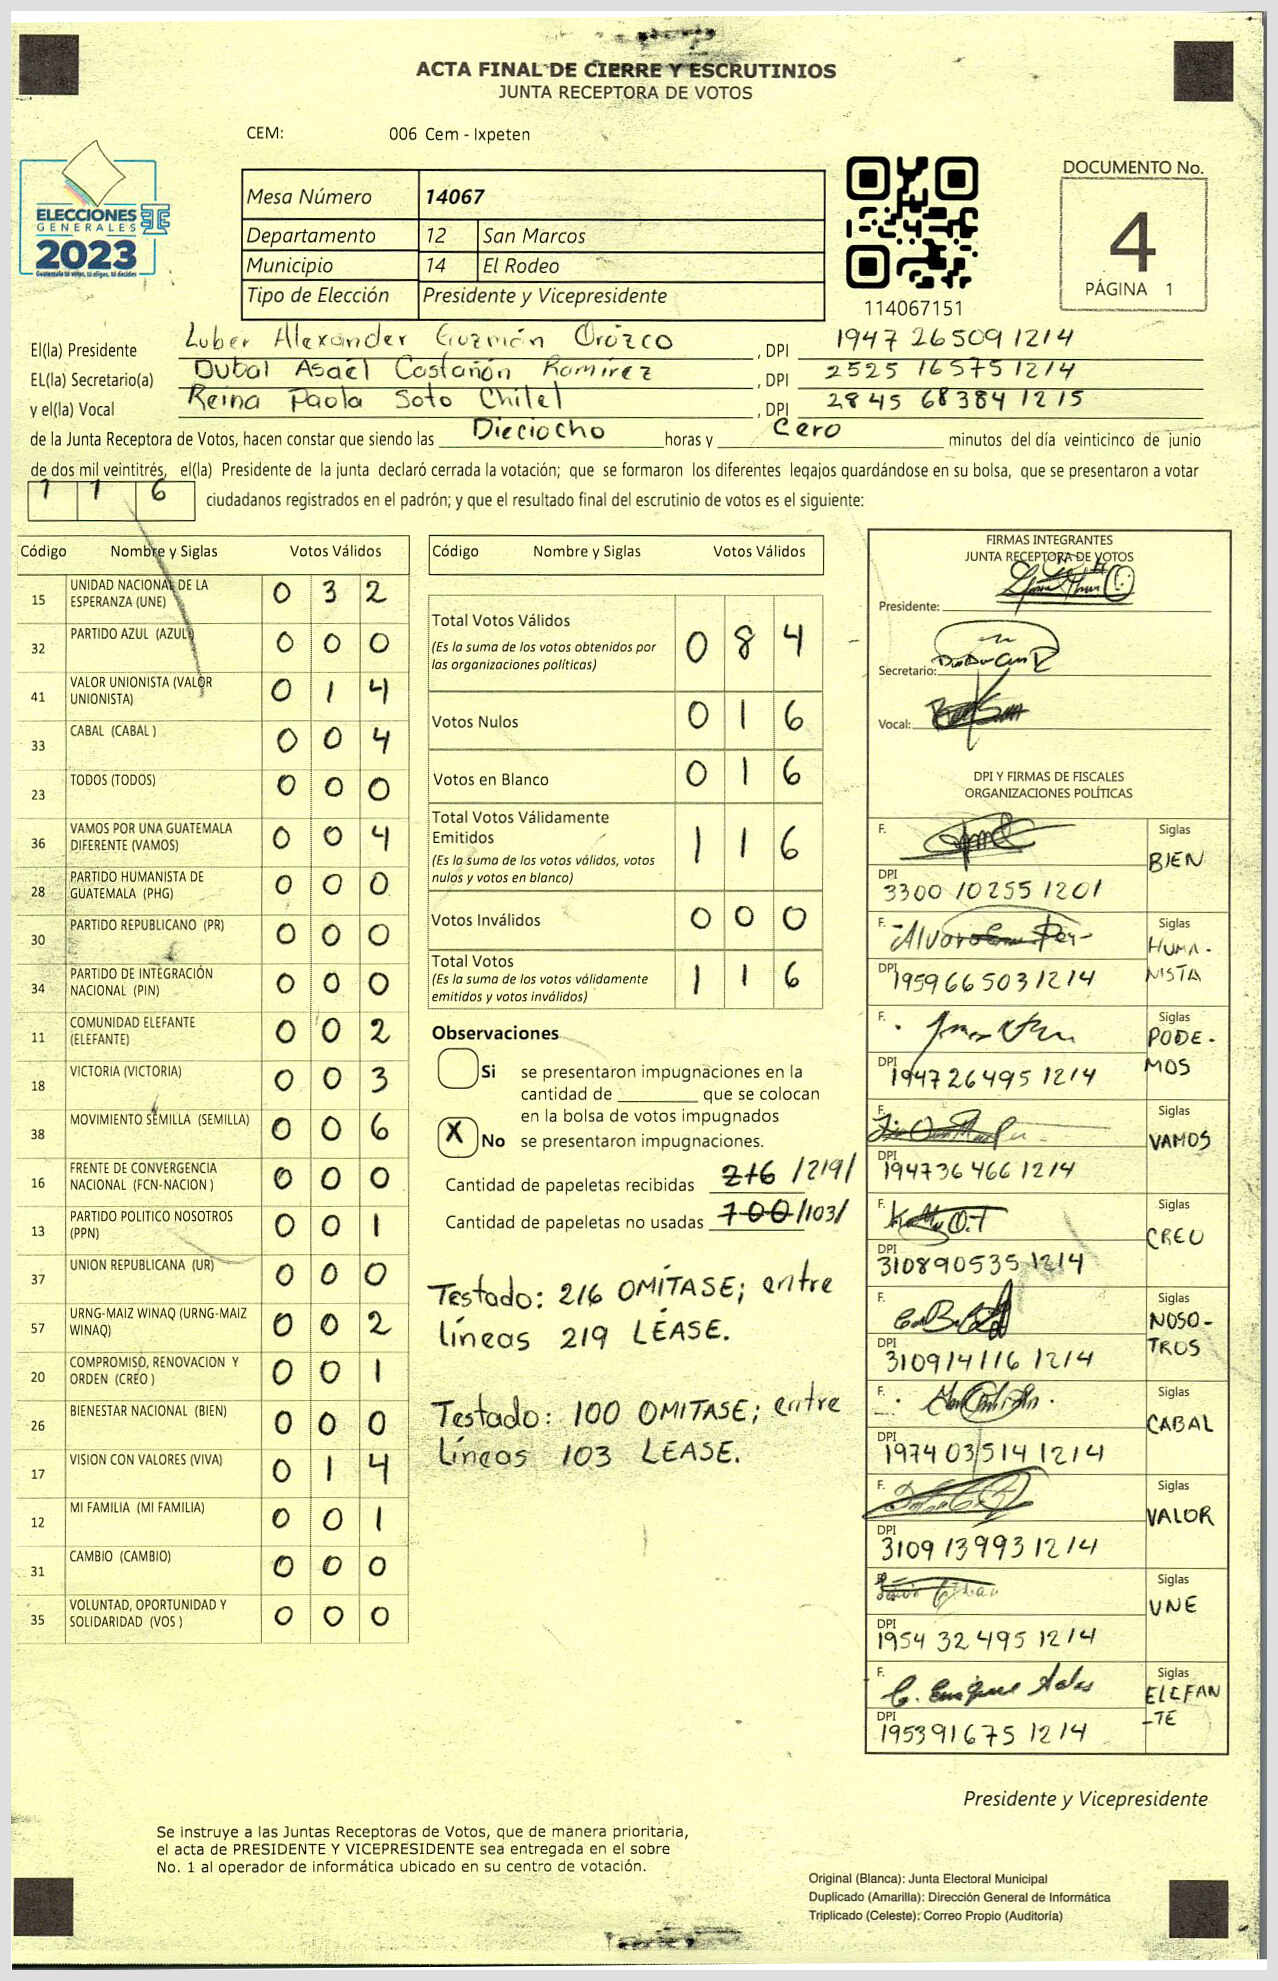 ACTA FINAL DE CIERRE Y ESCRUTINIOS
JUNTA RECEPTORA DE VOTOS
CEM: 006 Cem - Ixpeten
ELECCIONES
GENERALES
2023
Guatemala tú votas, tú eliges, tú decides
Mesa Número 14067
Departamento 12 San Marcos
Municipio 14 El Rodeo
Tipo de Elección Presidente y Vicepresidente
114067151
DOCUMENTO No.
4
PÁGINA 1
El(la) Presidente Luber Alexander Guzmán Orózco , DPI 1947 26509 1214
EL(la) Secretario(a) Dubal Asaél Castañón Ramírez , DPI 2525 16575 1214
y el(la) Vocal Reina Paola Soto Chilel , DPI 2845 68384 1215
de la Junta Receptora de Votos, hacen constar que siendo las Dieciocho horas y Cero minutos del día veinticinco de junio
de dos mil veintitrés, el(la) Presidente de la junta declaró cerrada la votación; que se formaron los diferentes legajos guardándose en su bolsa, que se presentaron a votar
1 1 6 ciudadanos registrados en el padrón; y que el resultado final del escrutinio de votos es el siguiente:
Código Nombre y Siglas Votos Válidos
15 UNIDAD NACIONAL DE LA ESPERANZA (UNE) 0 3 2
32 PARTIDO AZUL (AZUL) 0 0 0
41 VALOR UNIONISTA (VALOR UNIONISTA) 0 1 4
33 CABAL (CABAL ) 0 0 4
23 TODOS (TODOS) 0 0 0
36 VAMOS POR UNA GUATEMALA DIFERENTE (VAMOS) 0 0 4
28 PARTIDO HUMANISTA DE GUATEMALA (PHG) 0 0 0
30 PARTIDO REPUBLICANO (PR) 0 0 0
34 PARTIDO DE INTEGRACIÓN NACIONAL (PIN) 0 0 0
11 COMUNIDAD ELEFANTE (ELEFANTE) 0 0 2
18 VICTORIA (VICTORIA) 0 0 3
38 MOVIMIENTO SEMILLA (SEMILLA) 0 0 6
16 FRENTE DE CONVERGENCIA NACIONAL (FCN-NACION ) 0 0 0
13 PARTIDO POLITICO NOSOTROS (PPN) 0 0 1
37 UNION REPUBLICANA (UR) 0 0 0
57 URNG-MAIZ WINAQ (URNG-MAIZ WINAQ) 0 0 2
20 COMPROMISO, RENOVACION Y ORDEN (CREO ) 0 0 1
26 BIENESTAR NACIONAL (BIEN) 0 0 0
17 VISION CON VALORES (VIVA) 0 1 4
12 MI FAMILIA (MI FAMILIA) 0 0 1
31 CAMBIO (CAMBIO) 0 0 0
35 VOLUNTAD, OPORTUNIDAD Y SOLIDARIDAD (VOS ) 0 0 0
Código Nombre y Siglas Votos Válidos
Total Votos Válidos 0 8 4
(Es la suma de los votos obtenidos por
las organizaciones políticas)
Votos Nulos 0 1 6
Votos en Blanco 0 1 6
Total Votos Válidamente
Emitidos 1 1 6
(Es la suma de los votos válidos, votos
nulos y votos en blanco)
Votos Inválidos 0 0 0
Total Votos 1 1 6
(Es la suma de los votos válidamente
emitidos y votos inválidos)
Observaciones
Si se presentaron impugnaciones en la
cantidad de ________ que se colocan
en la bolsa de votos impugnados
X No se presentaron impugnaciones.
Cantidad de papeletas recibidas 216 /219/
Cantidad de papeletas no usadas 100 /103/
Testado: 216 OMÍTASE; entre
líneas 219 LÉASE.
Testado: 100 OMITASE; entre
Líneas 103 LEASE.
FIRMAS INTEGRANTES
JUNTA RECEPTORA DE VOTOS
Presidente:
Secretario:
Vocal:
DPI Y FIRMAS DE FISCALES
ORGANIZACIONES POLÍTICAS
F. Siglas BIEN
DPI 3300 10255 1201
F. Siglas HUMA-
NISTA
DPI 1959 66503 1214
F. Siglas PODE-
MOS
DPI 1947 26495 1214
F. Siglas VAMOS
DPI 1947 36 466 1214
F. Siglas CREO
DPI 3108 90535 1214
F. Siglas NOSO-
TROS
DPI 3109 14116 1214
F. Siglas CABAL
DPI 1974 03514 1214
F. Siglas VALOR
DPI 3109 13993 1214
F. Siglas UNE
DPI 1954 32 495 1214
F. Siglas ELEFAN
-TE
DPI 1953 91675 1214
Presidente y Vicepresidente
Se instruye a las Juntas Receptoras de Votos, que de manera prioritaria,
el acta de PRESIDENTE Y VICEPRESIDENTE sea entregada en el sobre
No. 1 al operador de informática ubicado en su centro de votación.
Original (Blanca): Junta Electoral Municipal
Duplicado (Amarilla): Dirección General de Informática
Triplicado (Celeste): Correo Propio (Auditoría)